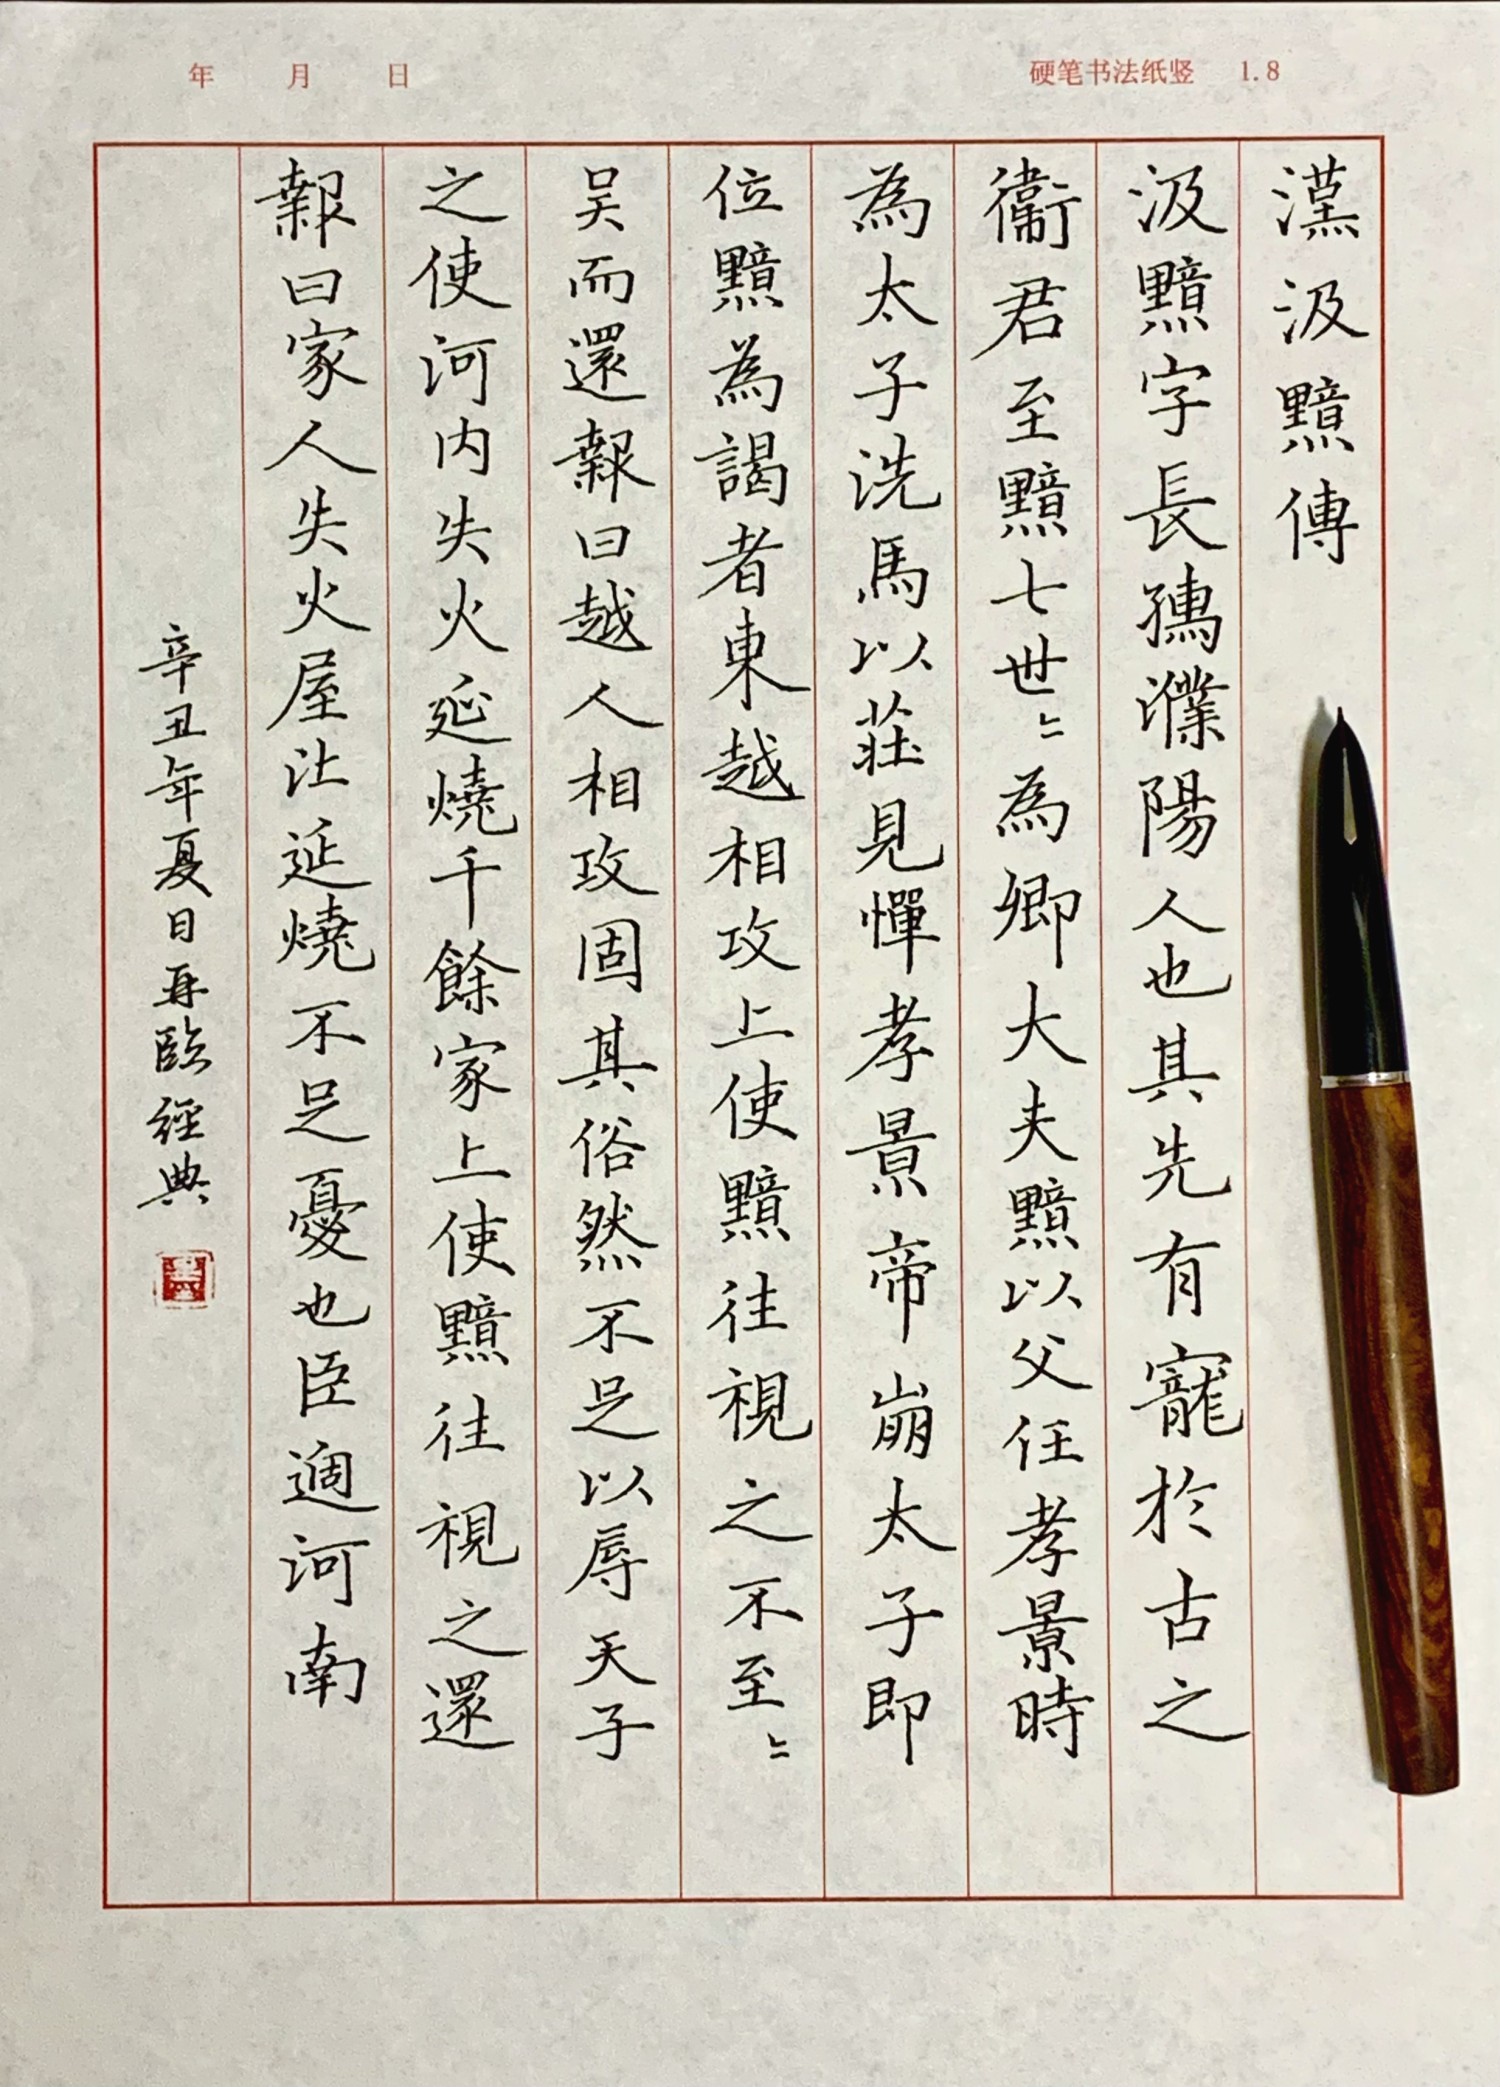 年 月 日
硬笔书法纸竖 1.8
漢汲黯傳
汲黯字長孺濮陽人也其先有寵於古之
衛君至黯七世〻為卿大夫黯以父任孝景時
為太子洗馬以莊見憚孝景帝崩太子即
位黯為謁者東越相攻上使黯往視之不至〻
吴而還報曰越人相攻固其俗然不足以辱天子
之使河内失火延燒千餘家上使黯往視之還
報曰家人失火屋比延燒不足憂也臣過河南
辛丑年夏日再臨經典